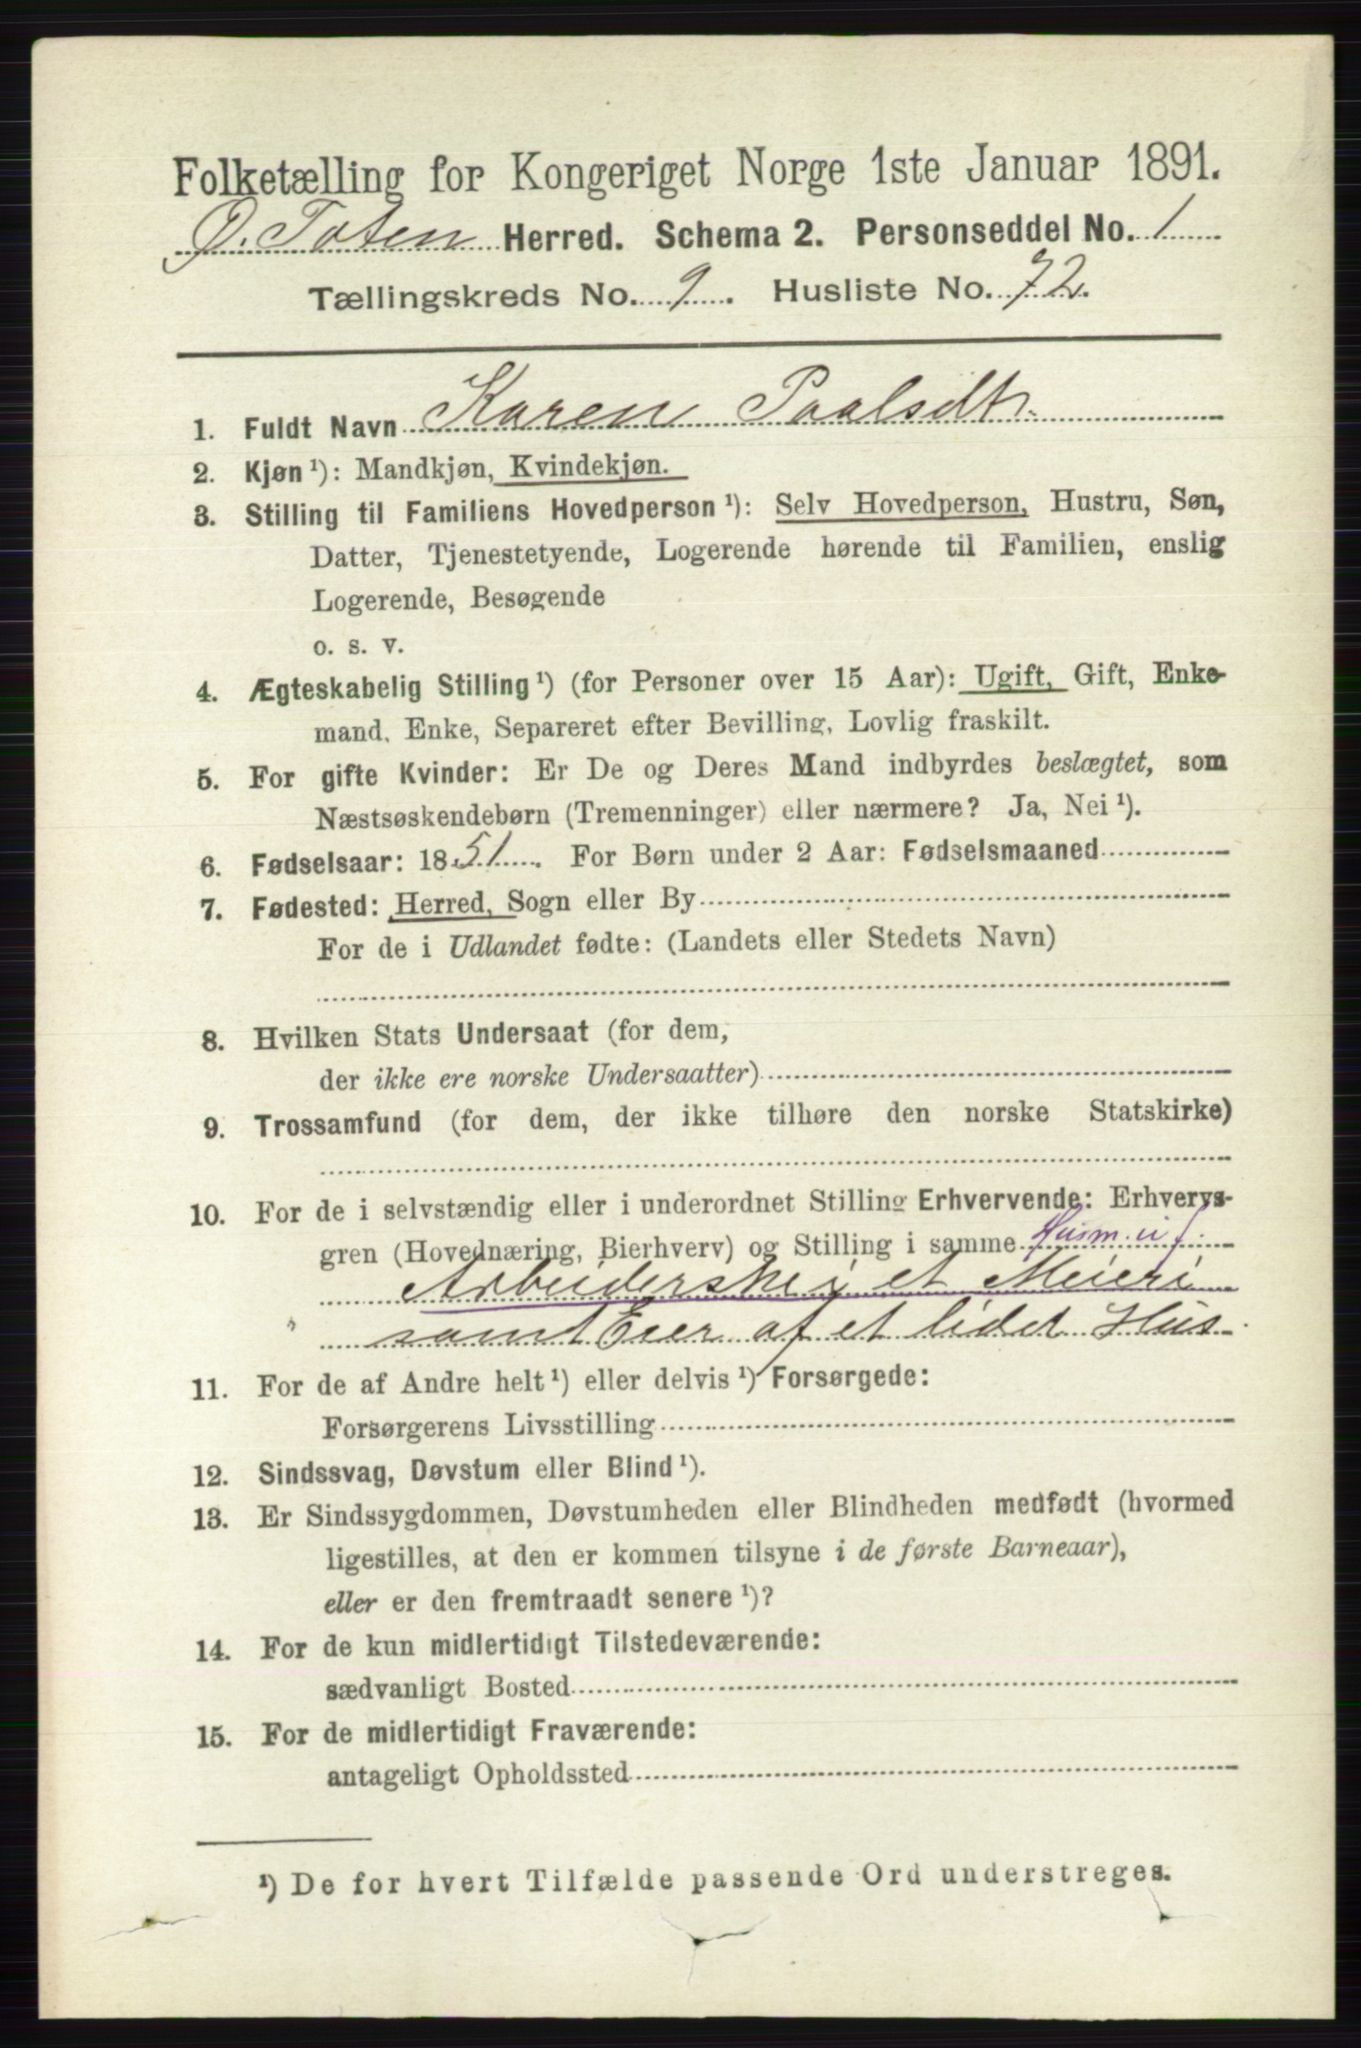 Folketælling for Kongeriget Norge 1ste Januar 1891.
Ø. Toten Herred. Schema 2. Personseddel No. 1
Tællingskreds No. 9. Husliste No. 72.
1. Fuldt Navn Karen Paalsdtr.
2. Kjøn ¹): Mandkjøn, Kvindekjøn.
3. Stilling til Familiens Hovedperson ¹): Selv Hovedperson, Hustru, Søn,
Datter, Tjenestetyende, Logerende hørende til Familien, enslig
Logerende, Besøgende
o. s. v.
4. Ægteskabelig Stilling ¹) (for Personer over 15 Aar): Ugift, Gift, Enke-
mand, Enke, Separeret efter Bevilling, Lovlig fraskilt.
5. For gifte Kvinder: Er De og Deres Mand indbyrdes beslægtet, som
Næstsøskendebørn (Tremenninger) eller nærmere? Ja, Nei ¹).
6. Fødselsaar: 1851. For Børn under 2 Aar: Fødselsmaaned
7. Fødested: Herred, Sogn eller By
For de i Udlandet fødte: (Landets eller Stedets Navn)
8. Hvilken Stats Undersaat (for dem,
der ikke ere norske Undersaatter)
9. Trossamfund (for dem, der ikke tilhøre den norske Statskirke)
10. For de i selvstændig eller i underordnet Stilling Erhvervende: Erhvervs-
gren (Hovednæring, Bierhverv) og Stilling i samme Husm. u. j.
Arbeiderske i et Meieri
samt Eier af et lidet Hus.
11. For de af Andre helt ¹) eller delvis ¹) Forsørgede:
Forsørgerens Livsstilling
12. Sindssvag, Døvstum eller Blind ¹).
13. Er Sindssygdommen, Døvstumheden eller Blindheden medfødt (hvormed
ligestilles, at den er kommen tilsyne i de første Barneaar),
eller er den fremtraadt senere ¹)?
14. For de kun midlertidigt Tilstedeværende:
sædvanligt Bosted
15. For de midlertidigt Fraværende:
antageligt Opholdssted
¹) De for hvert Tilfælde passende Ord understreges.